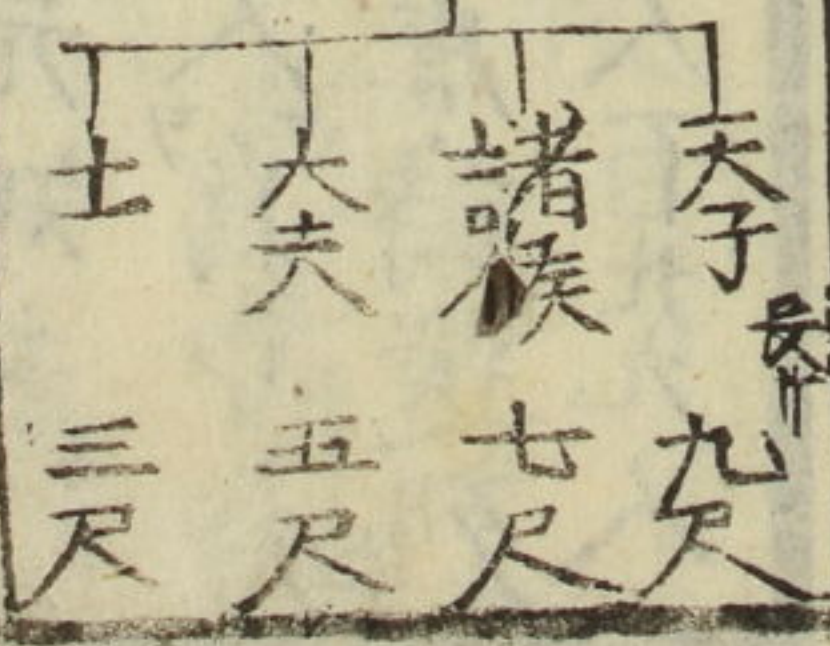 天子 九尺
諸侯 七尺
大夫 五尺
士 三尺